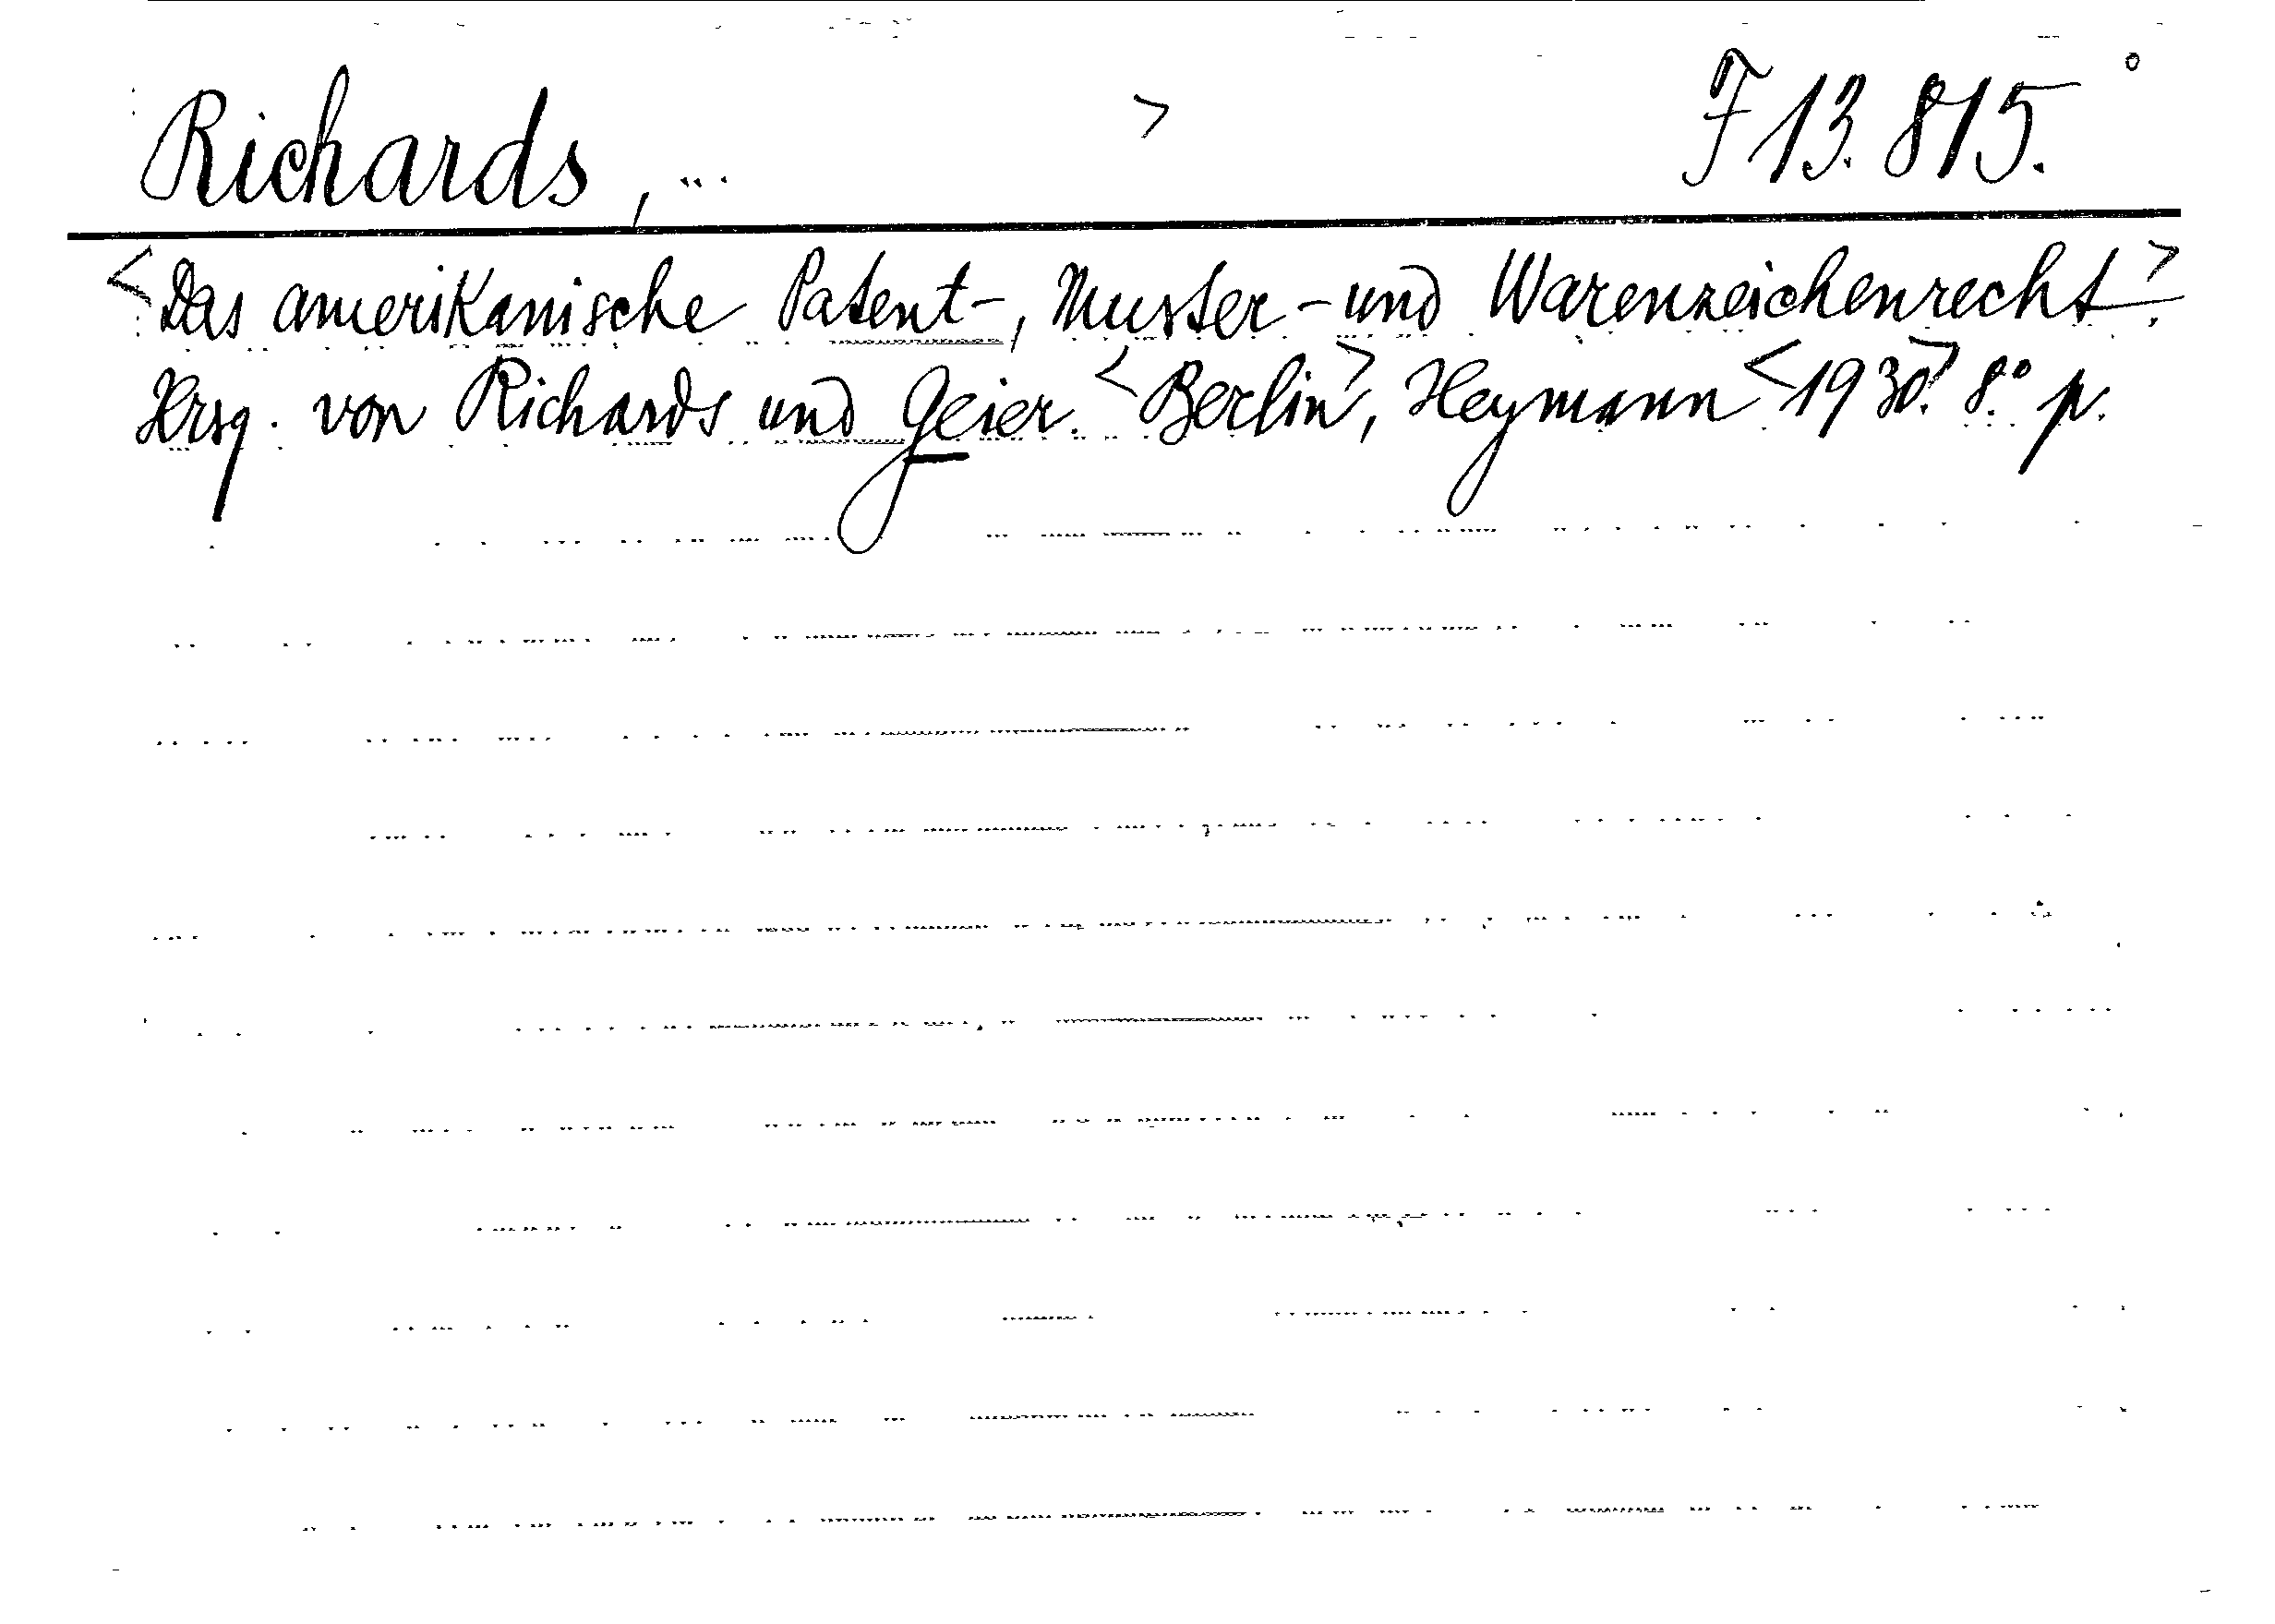 Richards, ... > F 13.815.°
<Das amerikanische Patent-, Muster- und Warenzeichenrecht>.
Hrsg. von Richards und Geier. <Berlin>, Heymann <1930>. 8.° p.